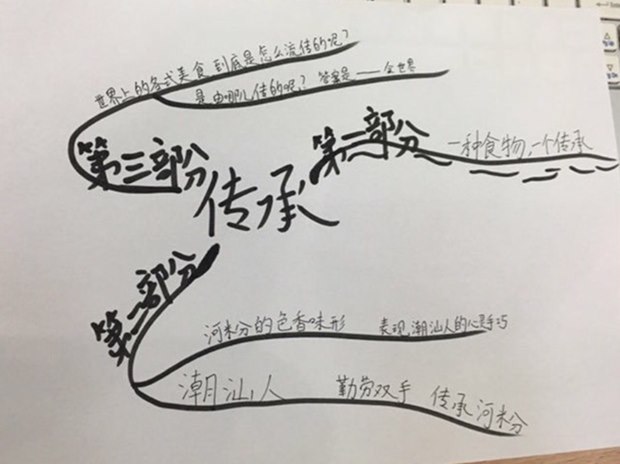 世界上的各式美食,到底是怎么流传的呢?
是由哪儿传的呢? 答案是——全世界
第三部分
第一部分
一种食物,一个传承
传承
第二部分
河粉的色香味形 表现潮汕人的心灵手巧
潮汕人 勤劳双手 传承河粉